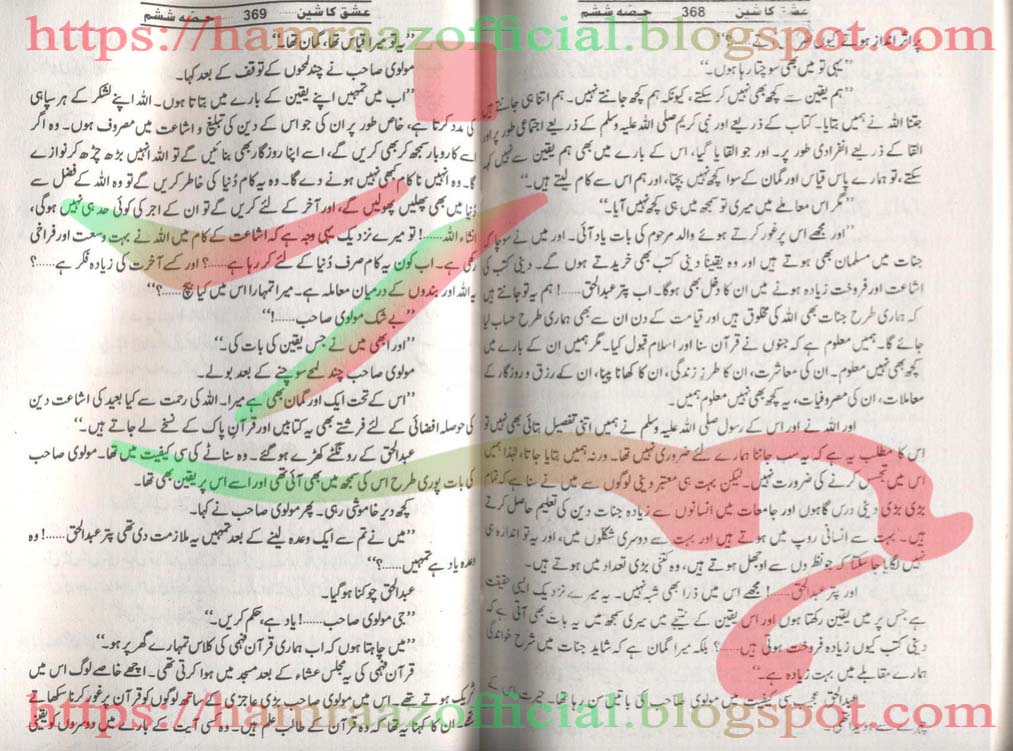 عشق کا شین ...... 368 حصہ ششم
پر اثر انداز ہوتے
‘‘یہی تو میں بھی سوچتا رہا ہوں۔’’
‘‘ہم یقین سے کچھ بھی نہیں کر سکتے، کیونکہ ہم کچھ جانتے نہیں۔ ہم اتنا ہی جانتے ہیں
جتنا اللہ نے ہمیں بتایا۔ کتاب کے ذریعے اور نبی کریم صلی اللہ علیہ وسلم کے ذریعے اجتماعی طور پر اور
القا کے ذریعے انفرادی طور پر۔ اور جو القا پا گیا، اس کے بارے میں بھی ہم یقین سے نہیں کہہ
سکتے، تو ہمارے پاس قیاس اور گمان کے سوا کچھ نہیں بچتا، اور ہم اس سے کام لیتے ہیں۔’’
‘‘مگر اس معاملے میں میری تو سمجھ میں ہی کچھ نہیں آیا۔’’
‘‘اور مجھے اس پر غور کرتے ہوئے والد مرحوم کی بات یاد آئی۔ اور میں نے سوچا کہ
جنات میں مسلمان بھی ہوتے ہیں اور وہ یقیناً دینی کتب بھی خریدتے ہوں گے۔ دینی کتب کی
اشاعت اور فروخت زیادہ ہونے میں ان کا دخل بھی ہوگا۔ اب پتر عبدالحق......! ہم یہ تو جانتے ہیں
کہ ہماری طرح جنات بھی اللہ کی مخلوق ہیں اور قیامت کے دن ان سے بھی ہماری طرح حساب لیا
جائے گا۔ ہمیں معلوم ہے کہ جنوں نے قرآن سنا اور اسلام قبول کیا۔ مگر ہمیں ان کے بارے میں
کچھ بھی نہیں معلوم۔ ان کی معاشرت، ان کا طرز زندگی، ان کا کھانا پینا، ان کے رزق و روزگار کے
معاملات، ان کی مصروفیات، یہ کچھ بھی نہیں معلوم ہمیں۔
اور اللہ نے اور اس کے رسول صلی اللہ علیہ وسلم نے ہمیں اتنی تفصیل بتائی بھی نہیں تو
اس کا مطلب یہ ہے کہ یہ سب جاننا ہمارے لئے ضروری نہیں تھا۔ ورنہ ہمیں بتایا جاتا، لہٰذا ہمیں
اس میں تجسس کرنے کی ضرورت نہیں۔ لیکن بہت ہی معتبر دینی لوگوں سے میں نے سنا ہے کہ تمام
بڑی بڑی دینی درس گاہوں اور جامعات میں انسانوں سے زیادہ جنات دین کی تعلیم حاصل کرتے
ہیں۔ بہت سے انسانی روپ میں ہوتے ہیں اور بہت سے دوسری شکلوں میں، اور یہ تو اندازہ ہی
نہیں لگایا جا سکتا کہ جو نظروں سے اوجھل ہوتے ہیں، وہ کتنی بڑی تعداد میں ہوتے ہیں۔
اور پتر عبدالحق......! مجھے اس میں ذرا بھی شبہ نہیں۔ یہ میرے نزدیک ایسی حقیقت
ہے جس پر میں یقین رکھتا ہوں اور اس یقین کے نتیجے میں میری سمجھ میں یہ بات بھی آتی ہے کہ
دینی کتب کیوں زیادہ فروخت ہوتی ہیں......؟ بلکہ میرا گمان ہے کہ شاید جنات میں شرح خواندگی
ہمارے مقابلے میں بہت زیادہ ہے۔’’
عبدالحق عجیب سی کیفیت میں مولوی صاحب کی باتیں سن رہا تھا۔ حیرت اس کے
چہرے سے ہویدا تھی۔
عشق کا شین ...... 369 حصہ ششم
‘‘یہ تو میرا قیاس تھا، گمان تھا۔’’
مولوی صاحب نے چند لمحوں کے توقف کے بعد کہا۔
‘‘اب میں تمہیں اپنے یقین کے بارے میں بتاتا ہوں۔ اللہ اپنے لشکر کے ہر سپاہی
کی مدد کرتا ہے، خاص طور پر ان کی جو اس کے دین کی تبلیغ و اشاعت میں مصروف ہوں۔ وہ اگر
اسے کاروبار سمجھ کر بھی کریں گے، اسے اپنا روزگار بھی بنائیں گے تو اللہ انہیں بڑھ چڑھ کر نوازے
گا۔ وہ انہیں ناکام کبھی نہیں ہونے دے گا۔ وہ یہ کام دُنیا کی خاطر کریں گے تو وہ اللہ کے فضل سے
دُنیا میں بھی پھلیں پھولیں گے، اور آخر کے لئے کریں گے تو ان کے اجر کی کوئی حد ہی نہیں ہوگی،
انشاء اللہ......! تو میرے نزدیک یہی وجہ ہے کہ اشاعت کے کام میں اللہ نے بہت وسعت اور فراخی
رکھی ہے۔ اب کون یہ کام صرف دُنیا کے لئے کر رہا ہے......؟ اور کسے آخرت کی زیادہ فکر ہے......؟
یہ اللہ اور بندوں کے درمیان معاملہ ہے۔ میرا تمہارا اس میں کیا بیچ......؟’’
‘‘بے شک مولوی صاحب......!’’
‘‘اور ابھی میں نے جس یقین کی بات کی۔’’
مولوی صاحب چند لمحے سوچنے کے بعد بولے۔
‘‘اس کے تحت ایک اور گمان بھی ہے میرا۔ اللہ کی رحمت سے کیا بعید کی اشاعت دین
کی حوصلہ افضائی کے لئے فرشتے بھی یہ کتابیں اور قرآن پاک کے نسخے لے جاتے ہیں۔’’
عبدالحق کے رونگٹے کھڑے ہو گئے۔ وہ سناٹے کی سی کیفیت میں تھا۔ مولوی صاحب
کی بات پوری طرح اس کی سمجھ میں بھی آئی تھی اور اسے اس پر یقین بھی تھا۔
کچھ دیر خاموشی رہی۔ پھر مولوی صاحب نے کہا۔
‘‘میں نے تم سے ایک وعدہ لینے کے بعد تمہیں یہ ملازمت دی تھی پتر عبدالحق......! وہ
وعدہ یاد ہے تمہیں......؟’’
عبدالحق چوکنا ہو گیا۔
‘‘جی مولوی صاحب......! یاد ہے، حکم کریں۔’’
‘‘میں چاہتا ہوں کہ اب ہماری قرآن فہمی کی کلاس تمہارے گھر پر ہو۔’’
قرآن فہمی کی یہ مجلس عشاء کے بعد مسجد میں ہوا کرتی تھی۔ اچھے خاصے لوگ اس میں
شریک ہوتے تھے۔ اس میں مولوی صاحب بڑی عاجزی کے ساتھ لوگوں کو قرآن پر غور کرنا سکھاتے
تھے۔ ان کا کہنا یہ تھا کہ وہ قرآن کے طالب علم ہیں۔ وہ کسی آیت کے بارے میں دوسروں کو یقینی
https://hamraazofficial.blogspot.com
https://hamraazofficial.blogspot.com